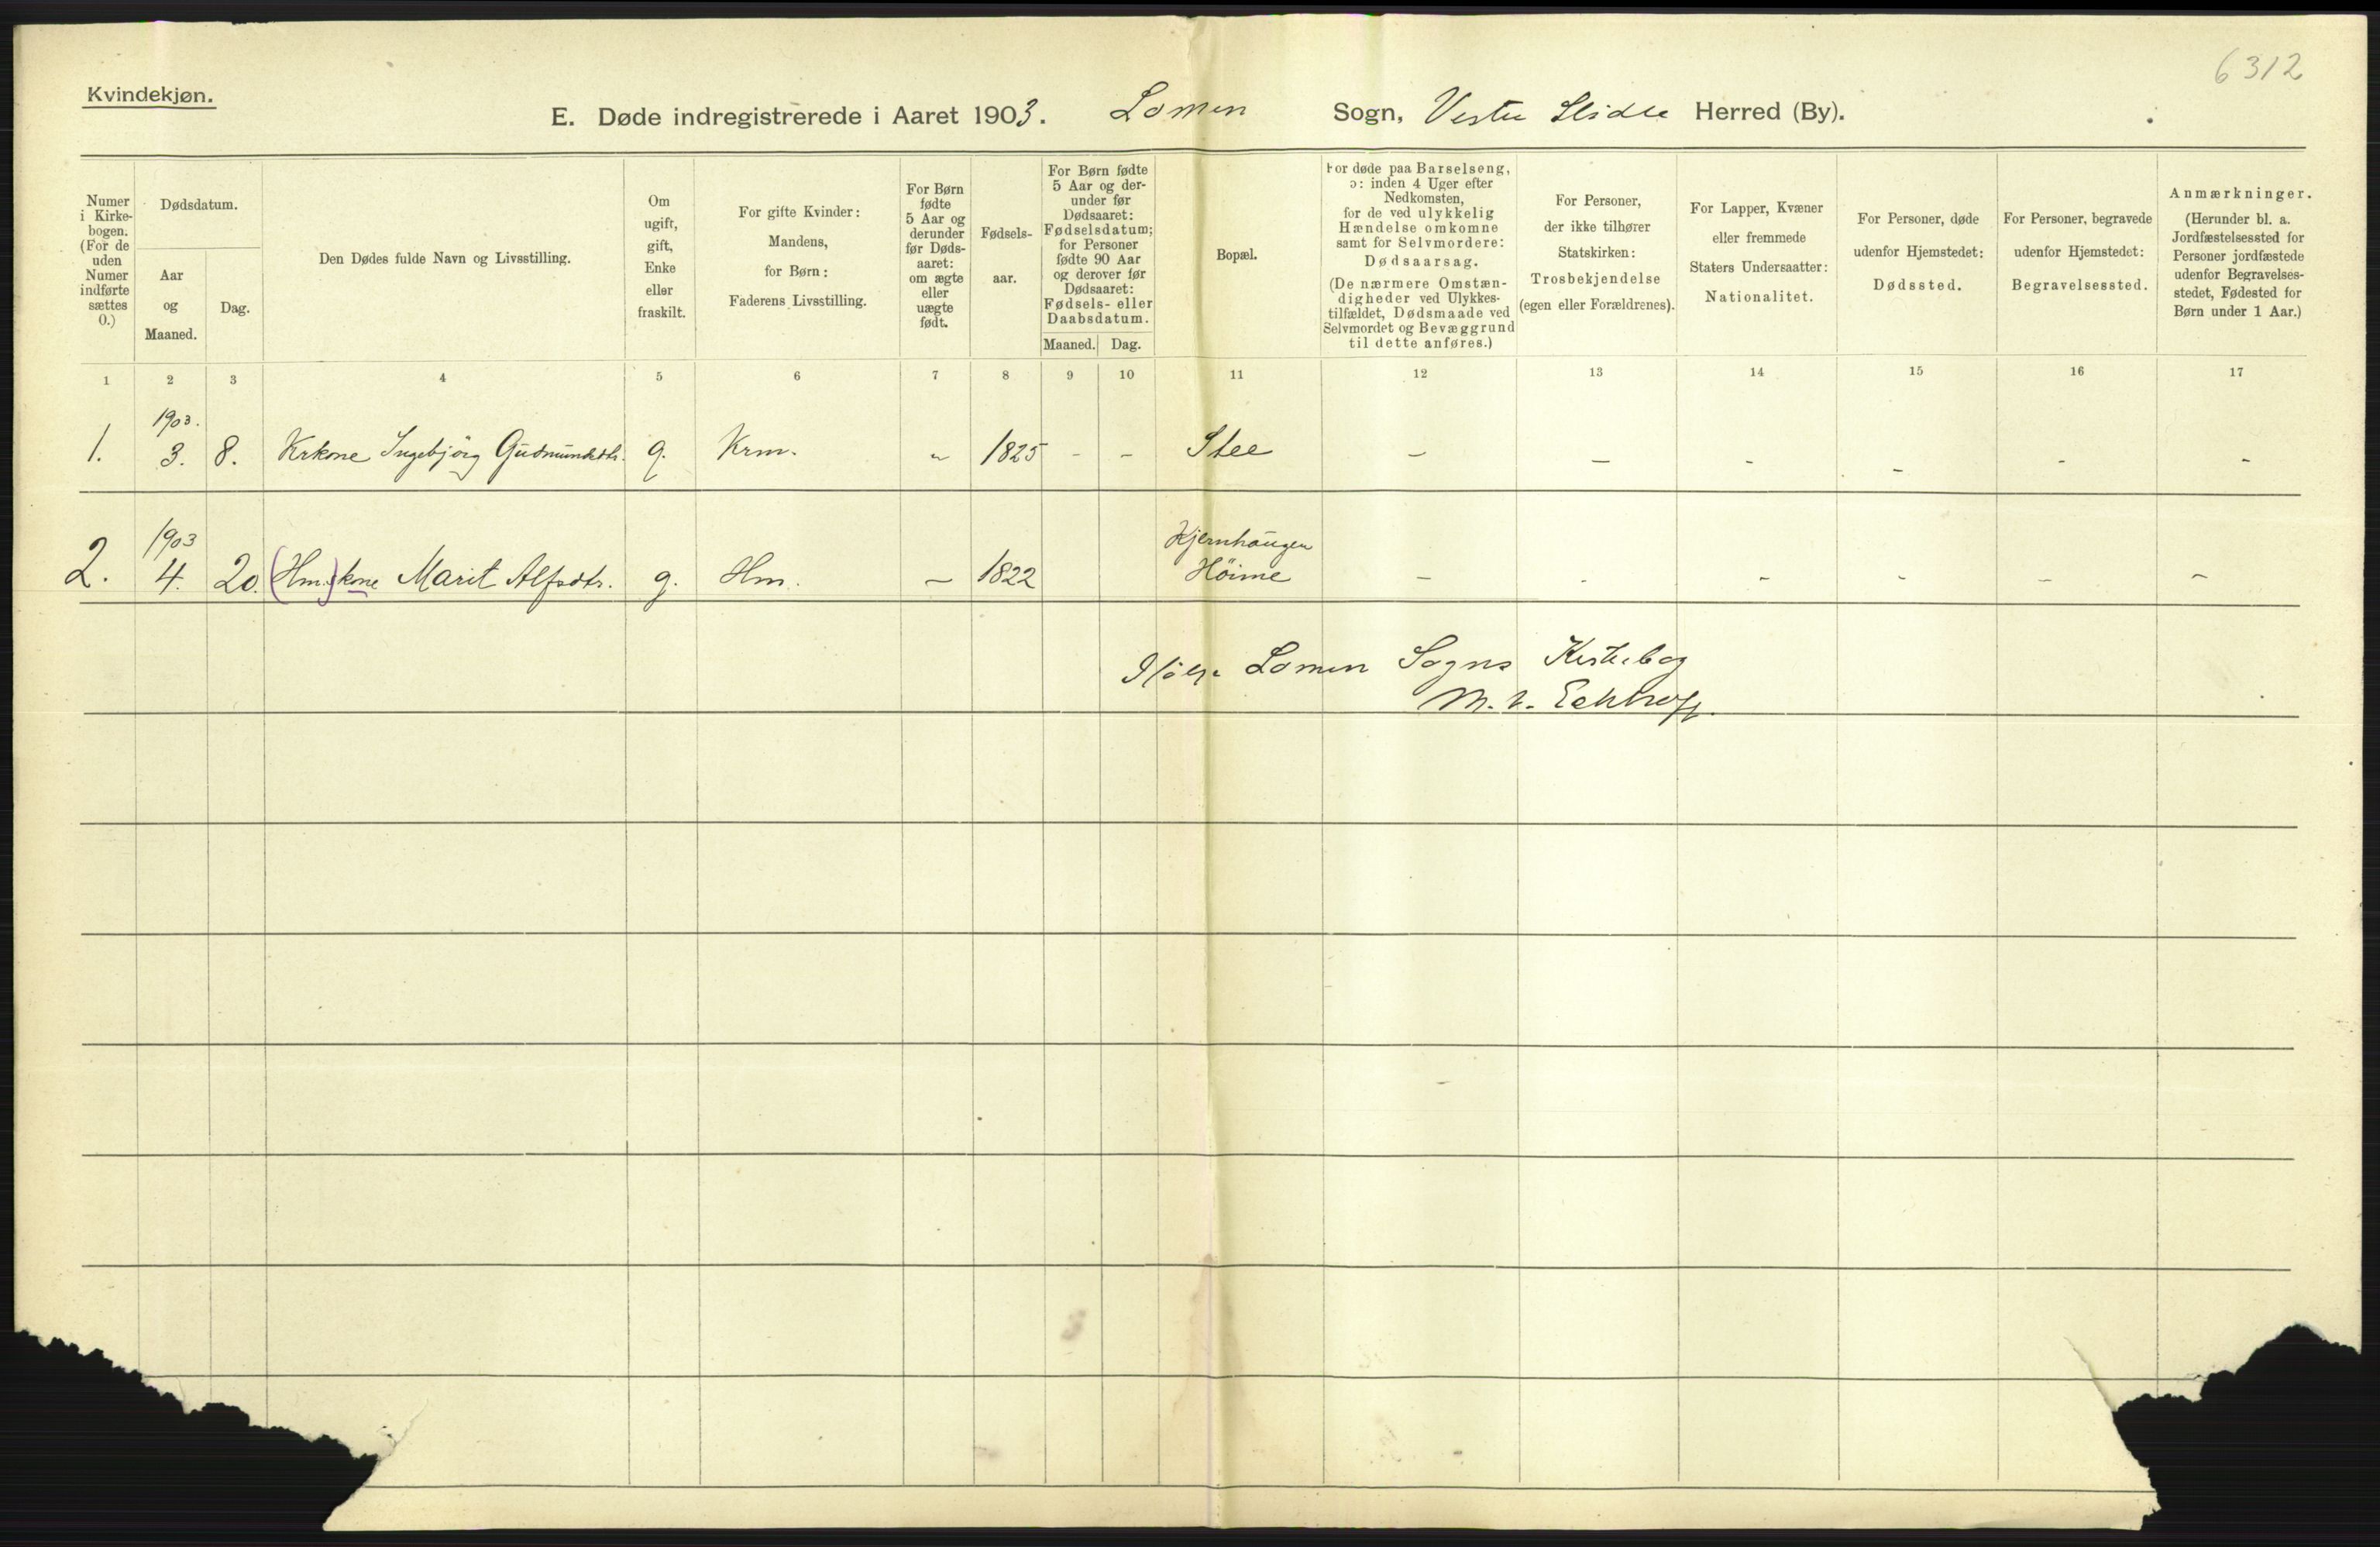 6312
Kvindekjøn.
E. Døde indregistrerede i Aaret 1903. Lomen Sogn, Vestre Slidre Herred (By).
Numer
i Kirke-
bogen.
(For de
uden
Numer
indførte
sættes
0.)
Dødsdatum.
Aar
og
Maaned.
Dag.
Den Dødes fulde Navn og Livsstilling.
Om
ugift,
gift,
Enke
eller
fraskilt.
For gifte Kvinder:
Mandens,
for Børn:
Faderens Livsstilling.
For Børn
fødte
5 Aar og
derunder
før Døds-
aaret:
om ægte
eller
uægte
født.
Fødsels-
aar.
For Børn fødte
5 Aar og der-
under før
Dødsaaret:
Fødselsdatum;
for Personer
fødte 90 Aar
og derover før
Dødsaaret:
Fødsels- eller
Daabsdatum.
Maaned. Dag.
Bopæl.
For døde paa Barselseng,
ɔ: inden 4 Uger efter
Nedkomsten,
for de ved ulykkelig
Hændelse omkomne
samt for Selvmordere:
Dødsaarsag.
(De nærmere Omstæn-
digheder ved Ulykkes-
tilfældet, Dødsmaade ved
Selvmordet og Bevæggrund
til dette anføres.)
For Personer,
der ikke tilhører
Statskirken:
Trosbekjendelse
(egen eller Forældrenes).
For Lapper, Kvæner
eller fremmede
Staters Undersaatter:
Nationalitet.
For Personer, døde
udenfor Hjemstedet:
Dødssted.
For Personer, begravede
udenfor Hjemstedet:
Begravelsessted.
Anmærkninger.
(Herunder bl. a.
Jordfæstelsessted for
Personer jordfæstede
udenfor Begravelses-
stedet, Fødested for
Børn under 1 Aar.)
1 2 3 4 5 6 7 8 9 10 11 12 13 14 15 16 17
1903.
1. 3. 8. Krkone Ingebjörg Gudmundsdtr. g. Krm. - 1825 - - Stee - - - - - -
1903 Kjernhaugen
2. 4. 20. (Hm.)kone Marit Alfsdtr. g. Hm. - 1822 Höime - - - - - -
Ifölge Lomen Sogns Kirkebog
M. v.